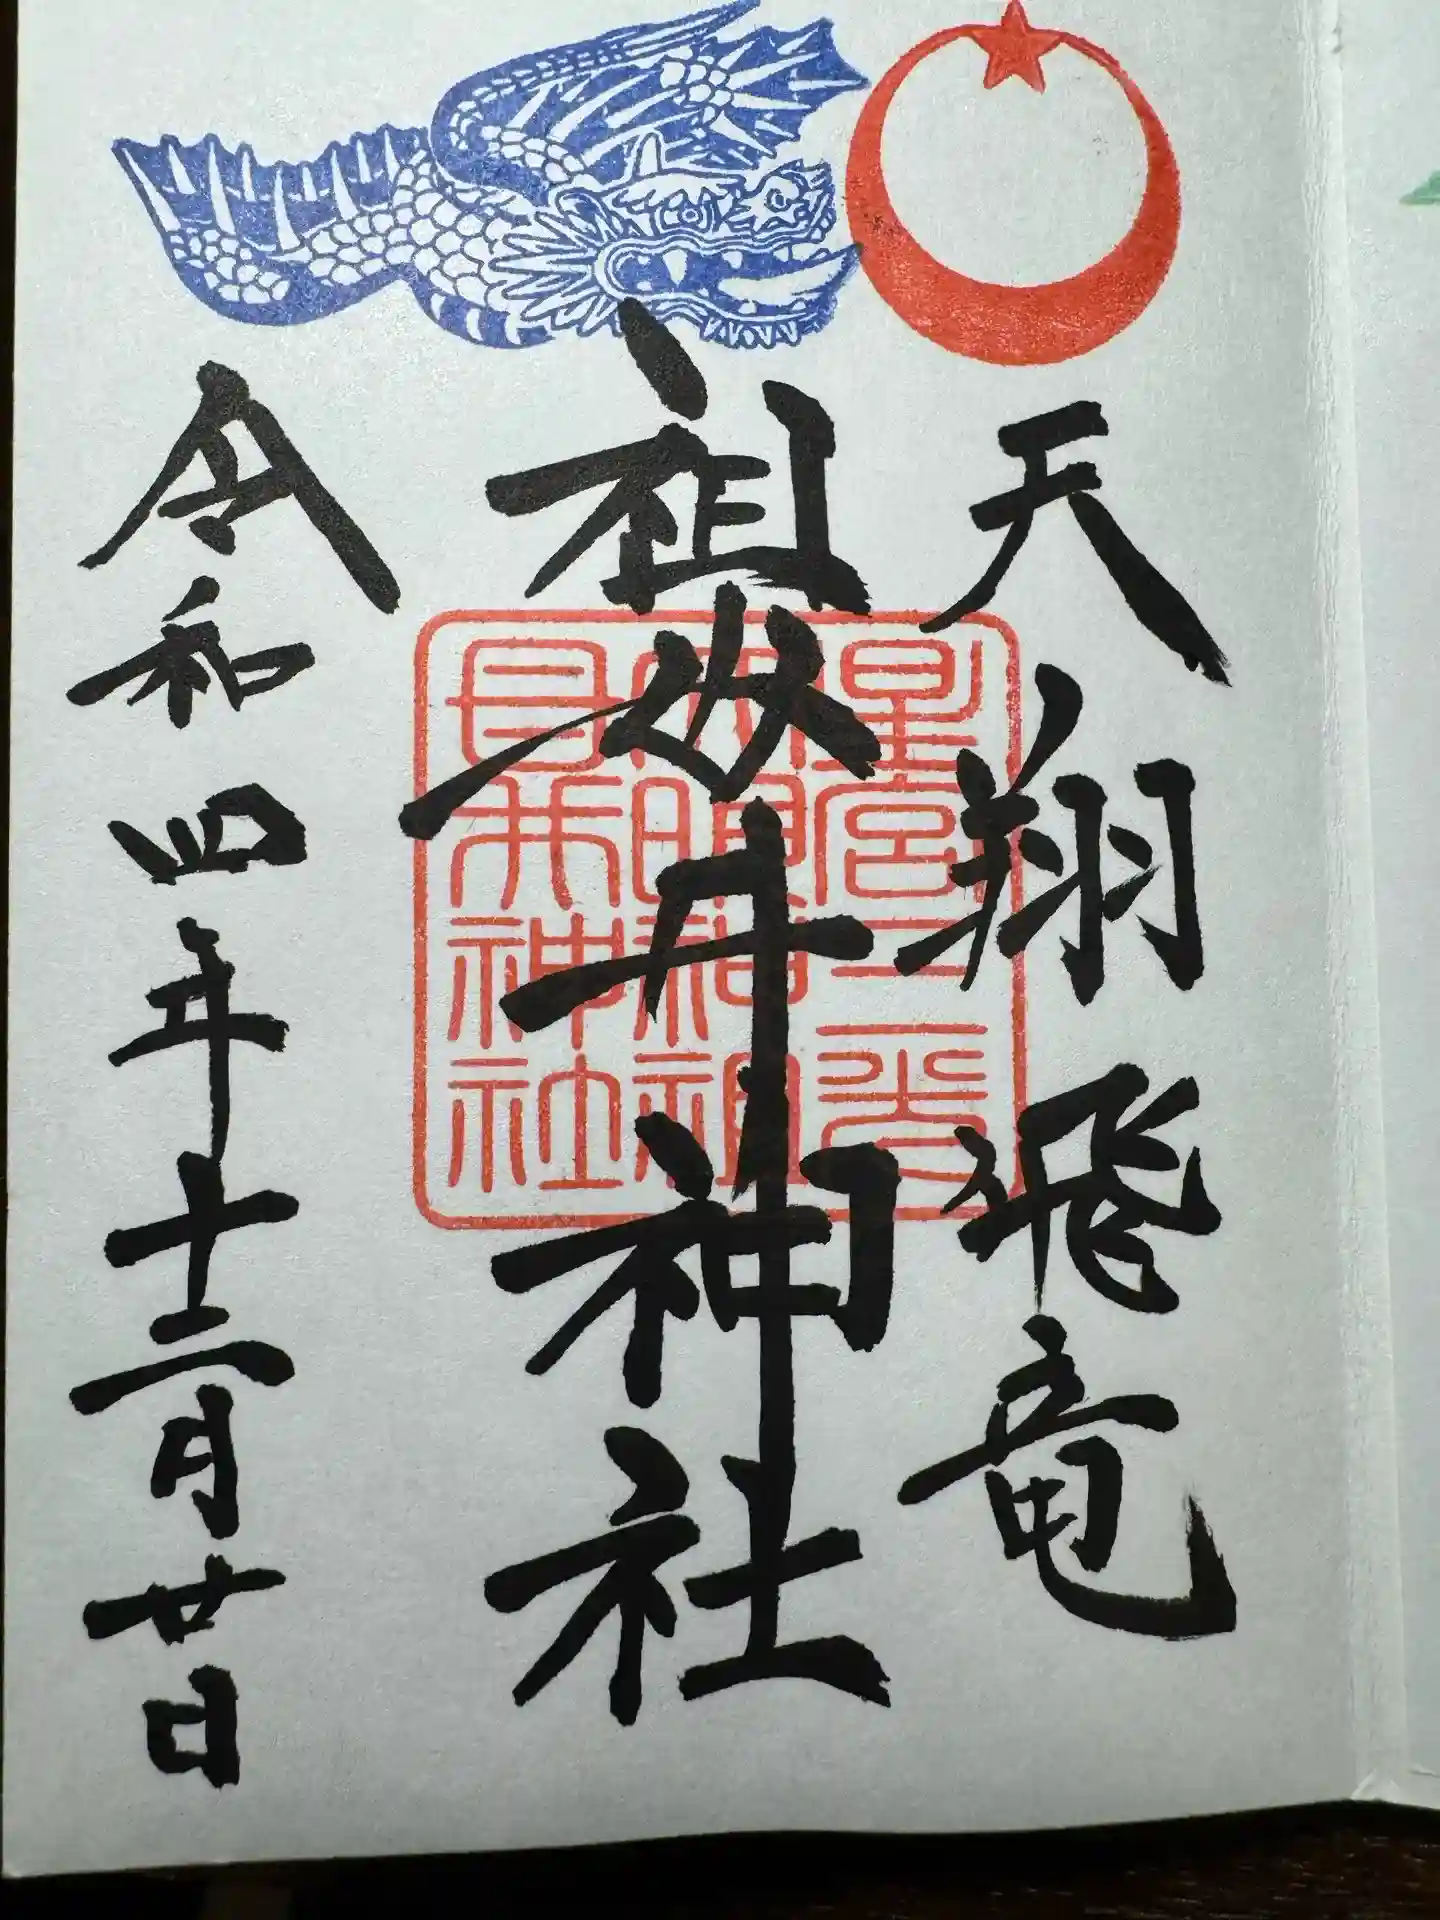 天翔飛竜
祖母井神社
令和四年十二月廿日
星宮
大明神祖
母井神社